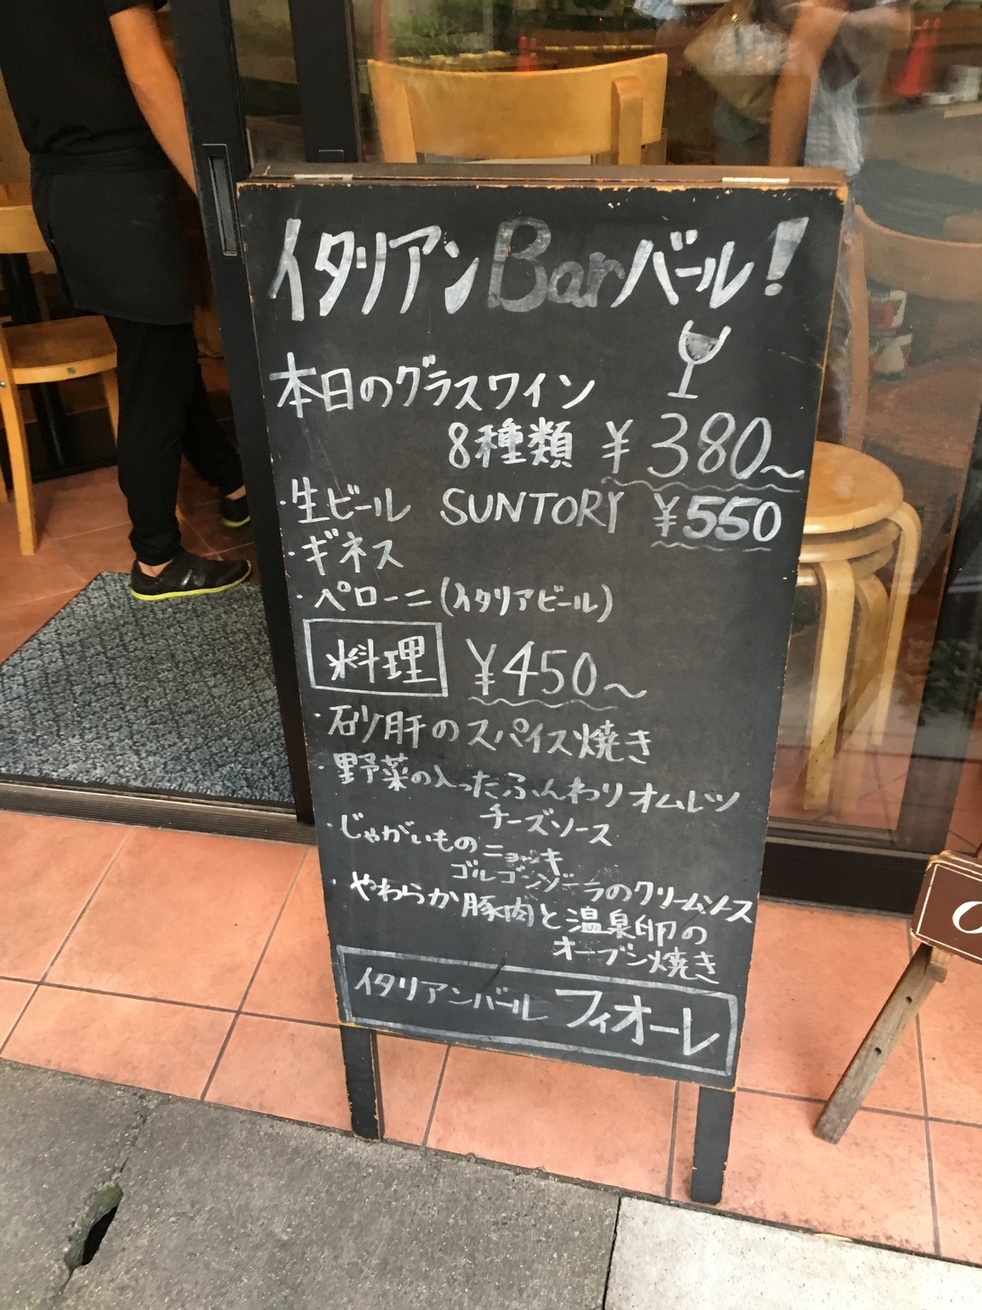 イタリアンBarバール!
本日のグラスワイン
8種類 ¥380~
・生ビール SUNTORY ¥550
・ギネス
・ペローニ (イタリアビール)
料理 ¥450~
・砂肝のスパイス焼き
・野菜の入ったふんわりオムレツ
チーズソース
・じゃがいものニョッキ
ゴルゴンゾーラのクリームソース
・やわらか豚肉と温泉卵の
オーブン焼き
イタリアンバール フィオーレ